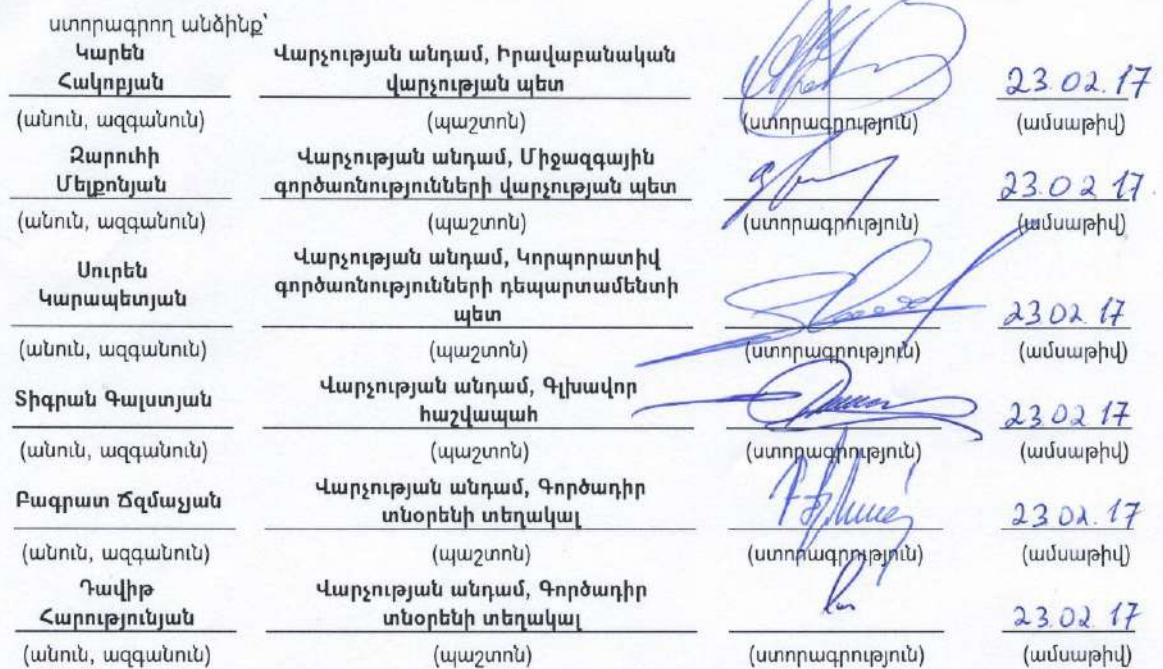 ստորագրող անձինք՝
Կարեն Հակոբյան
Վարչության անդամ, Իրավաբանական վարչության պետ
23.02.17
(անուն, ազգանուն) (պաշտոն) (ստորագրություն) (ամսաթիվ)
Զարուհի Մելքոնյան
Վարչության անդամ, Միջազգային գործառնությունների վարչության պետ
23.02.17.
(անուն, ազգանուն) (պաշտոն) (ստորագրություն) (ամսաթիվ)
Սուրեն Կարապետյան
Վարչության անդամ, Կորպորատիվ գործառնությունների դեպարտամենտի պետ
23.02.17
(անուն, ազգանուն) (պաշտոն) (ստորագրություն) (ամսաթիվ)
Տիգրան Գալստյան
Վարչության անդամ, Գլխավոր հաշվապահ
23.02.17
(անուն, ազգանուն) (պաշտոն) (ստորագրություն) (ամսաթիվ)
Բագրատ Ճզմաչյան
Վարչության անդամ, Գործադիր տնօրենի տեղակալ
23.02.17
(անուն, ազգանուն) (պաշտոն) (ստորագրություն) (ամսաթիվ)
Դավիթ Հարությունյան
Վարչության անդամ, Գործադիր տնօրենի տեղակալ
23.02.17
(անուն, ազգանուն) (պաշտոն) (ստորագրություն) (ամսաթիվ)